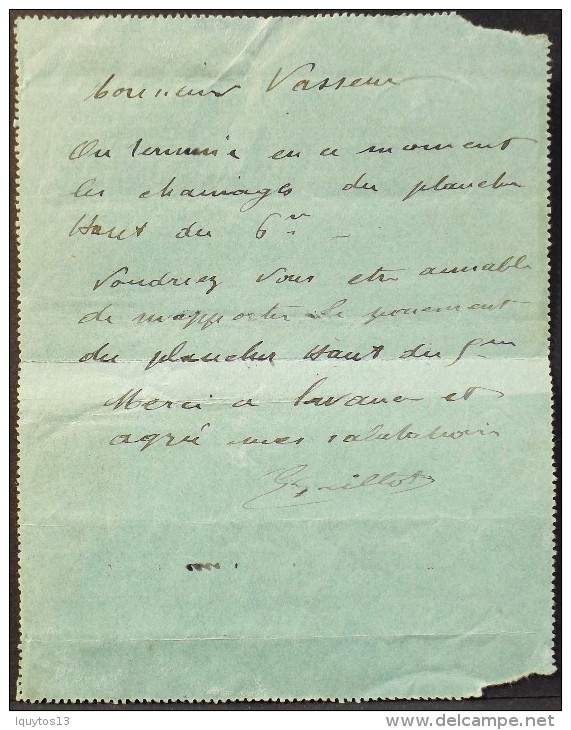 Monsieur Vasseur
On termine en ce moment
les chainages du plancher
Haut du 6me
Voudriez vous etre aimable
de m'apporter le
du plancher Haut du 5me
Merci a l'avance et
agréé mes salutations
lquytos13
www.delcampe.net